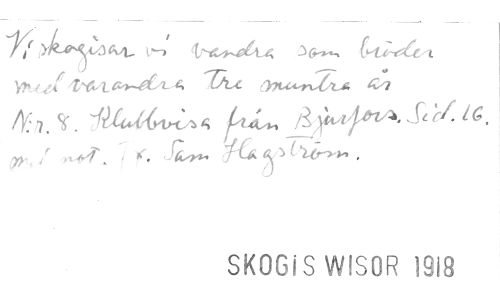 Vi skogisar vi vandra som bröder
med varandra tre muntra år
N:r. 8. Klubbvisa från Bjurfors. Sid. 16.
med not. Tx. Sam Hagström.
SKOGIS WISOR 1918